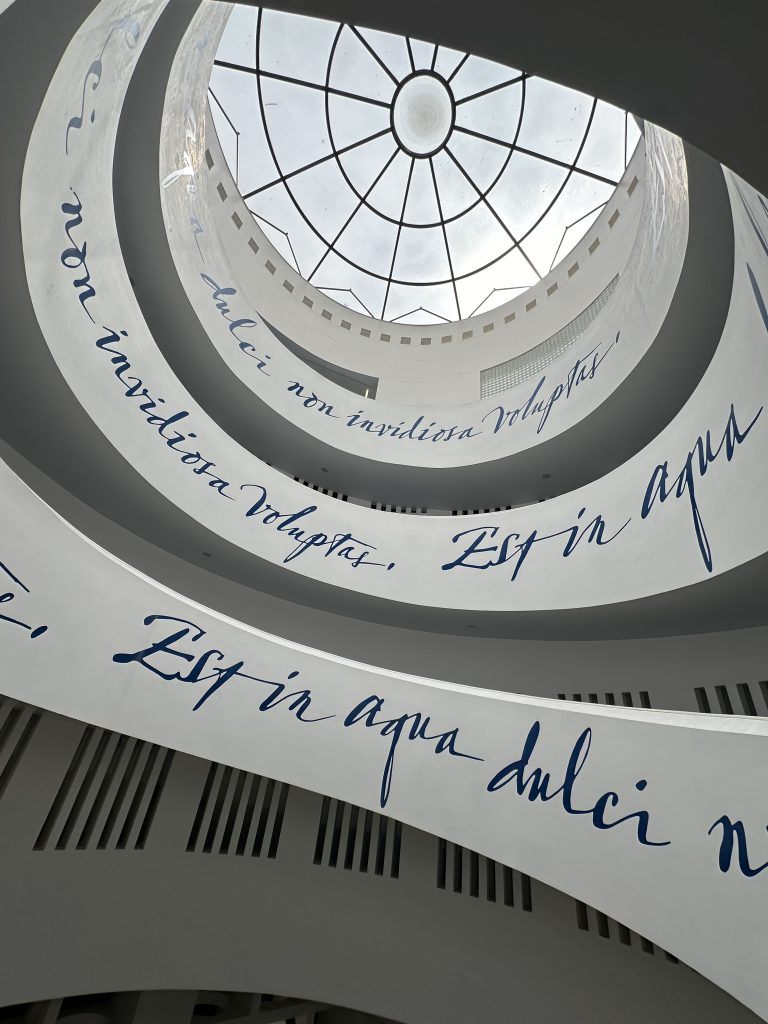 dulci non invidiosa voluptas.
dulci non invidiosa voluptas. Est in agua
Est in agua dulci n